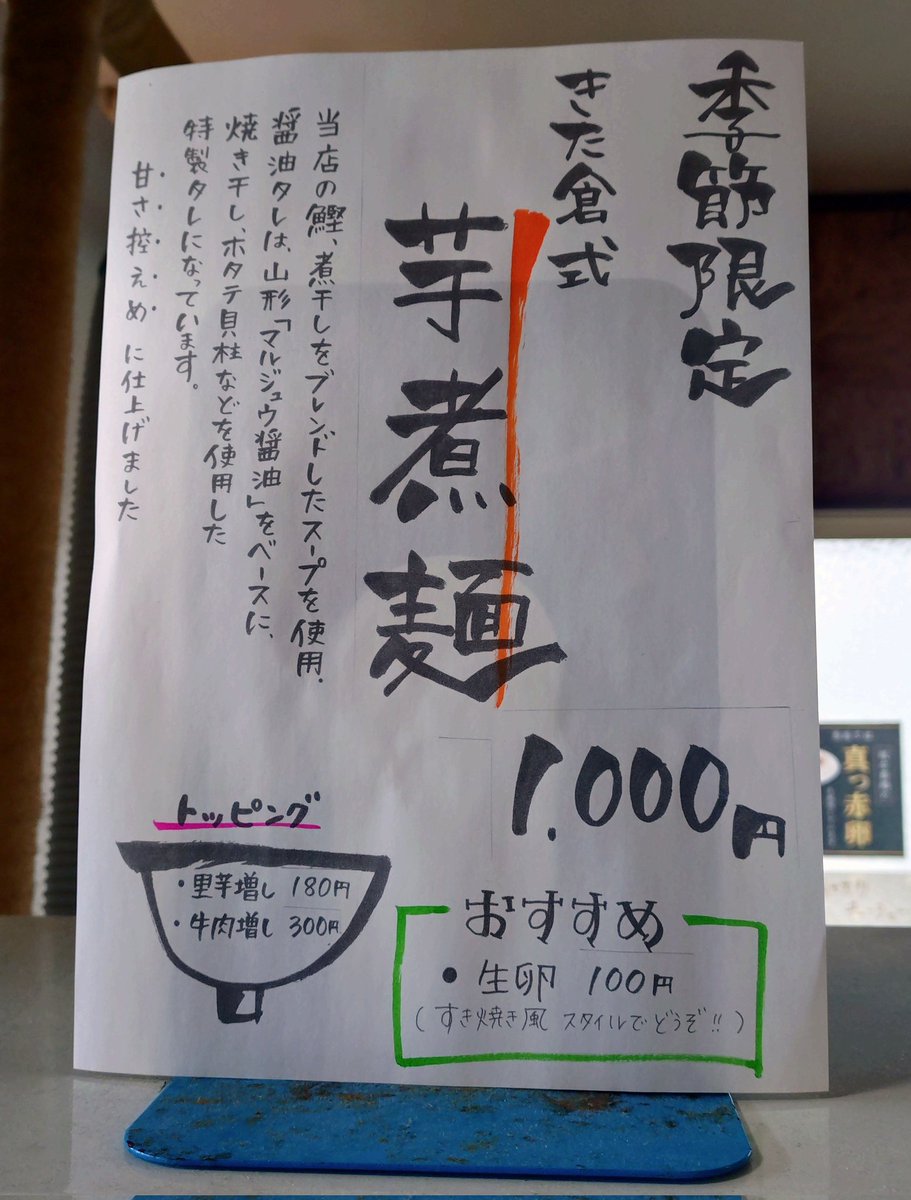 季節限定
きた倉式
芋煮麺
1.000円
当店の鰹、煮干しをブレンドしたスープを使用.
醤油タレは、山形「マルジュウ醤油」をベースに、
焼き干し、ホタテ貝柱などを使用した
特製タレになっています。
甘さ控えめに仕上げました
トッピング
・里芋増し 180円
・牛肉増し 300円
おすすめ
● 生卵 100円
(すき焼き風 スタイルでどうぞ!!)
真っ赤卵